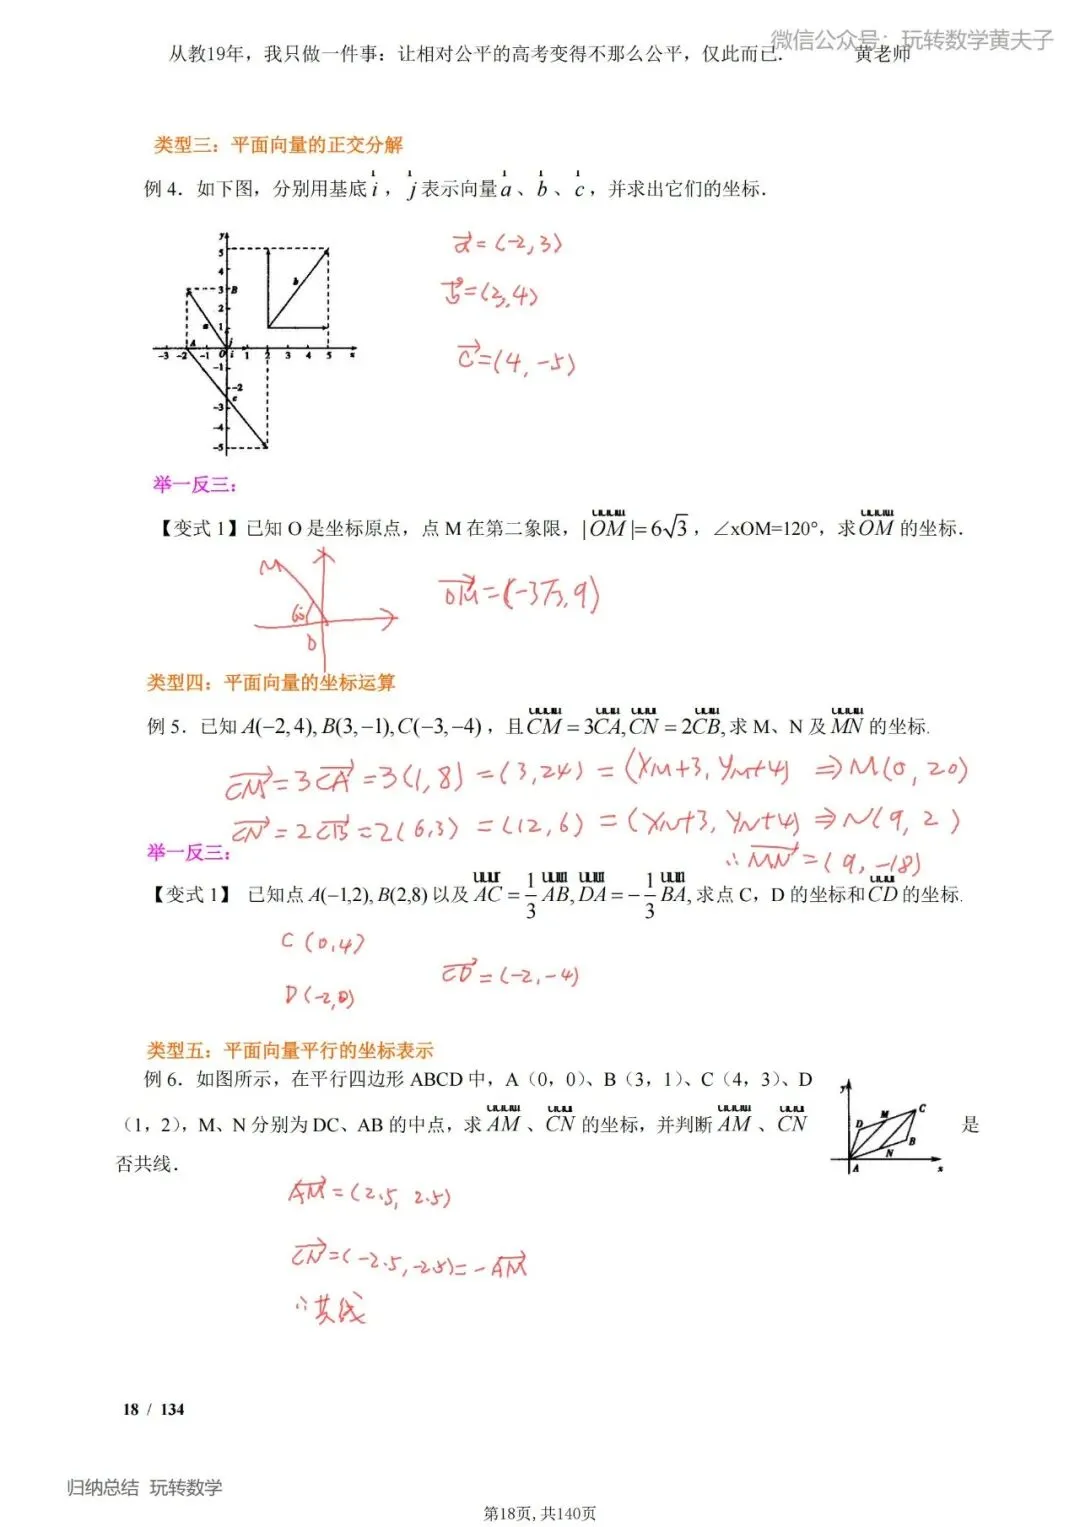 微信公众号：玩转数学黄夫子
从教19年，我只做一件事：让相对公平的高考变得不那么公平，仅此而已． 黄老师
类型三：平面向量的正交分解
例 4．如下图，分别用基底 i ， j 表示向量 a 、 b 、 c ，并求出它们的坐标．
a=(-2,3)
b=(3,4)
c=(4,-5)
举一反三：
【变式 1】已知 O 是坐标原点，点 M 在第二象限，|OM|=6√3，∠xOM=120°，求OM 的坐标．
M
60
O
OM=(-3√3,9)
类型四：平面向量的坐标运算
例 5．已知 A(−2,4), B(3,−1), C(−3,−4)，且CM = 3CA, CN = 2CB, 求 M、N 及 MN 的坐标.
CM=3CA=3(1,8)=(3,24)=(XM+3, YM+4) ⇒M(0,20)
CN=2CB=2(6,3)=(12,6)=(XN+3, YN+4)⇒N(9,2)
举一反三：
∴MN=(9,-18)
【变式 1】 已知点 A(−1,2), B(2,8) 以及 AC = 1/3 AB, DA = − 1/3 BA, 求点 C，D 的坐标和CD 的坐标.
C(0,4)
CD=(-2,-4)
D(-2,0)
类型五：平面向量平行的坐标表示
例 6．如图所示，在平行四边形 ABCD 中，A（0，0）、B（3，1）、C（4，3）、D
（1，2），M、N 分别为 DC、AB 的中点，求 AM 、CN 的坐标，并判断 AM 、CN 是
否共线．
y
D
M
C
B
N
A
x
AM=(2.5, 2.5)
CN=(-2.5,-2.5)=-AM
∴共线
18 / 134
归纳总结 玩转数学
第18页,共140页